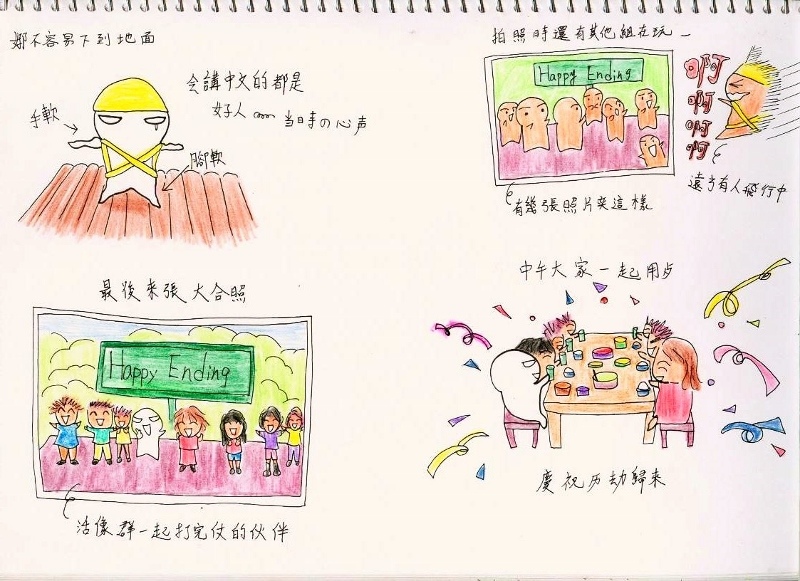 娜不容易下到地面
會講中文的都是
好人
當時の心声
手軟
腳軟
拍照時還有其他組在玩
Happy Ending
啊
啊
啊
啊
遠方有人飛行中
有幾張照片夾這樣
最後來張大合照
Happy Ending
活像群一起打完仗的伙伴
中午大家一起用歺
慶祝历劫歸來